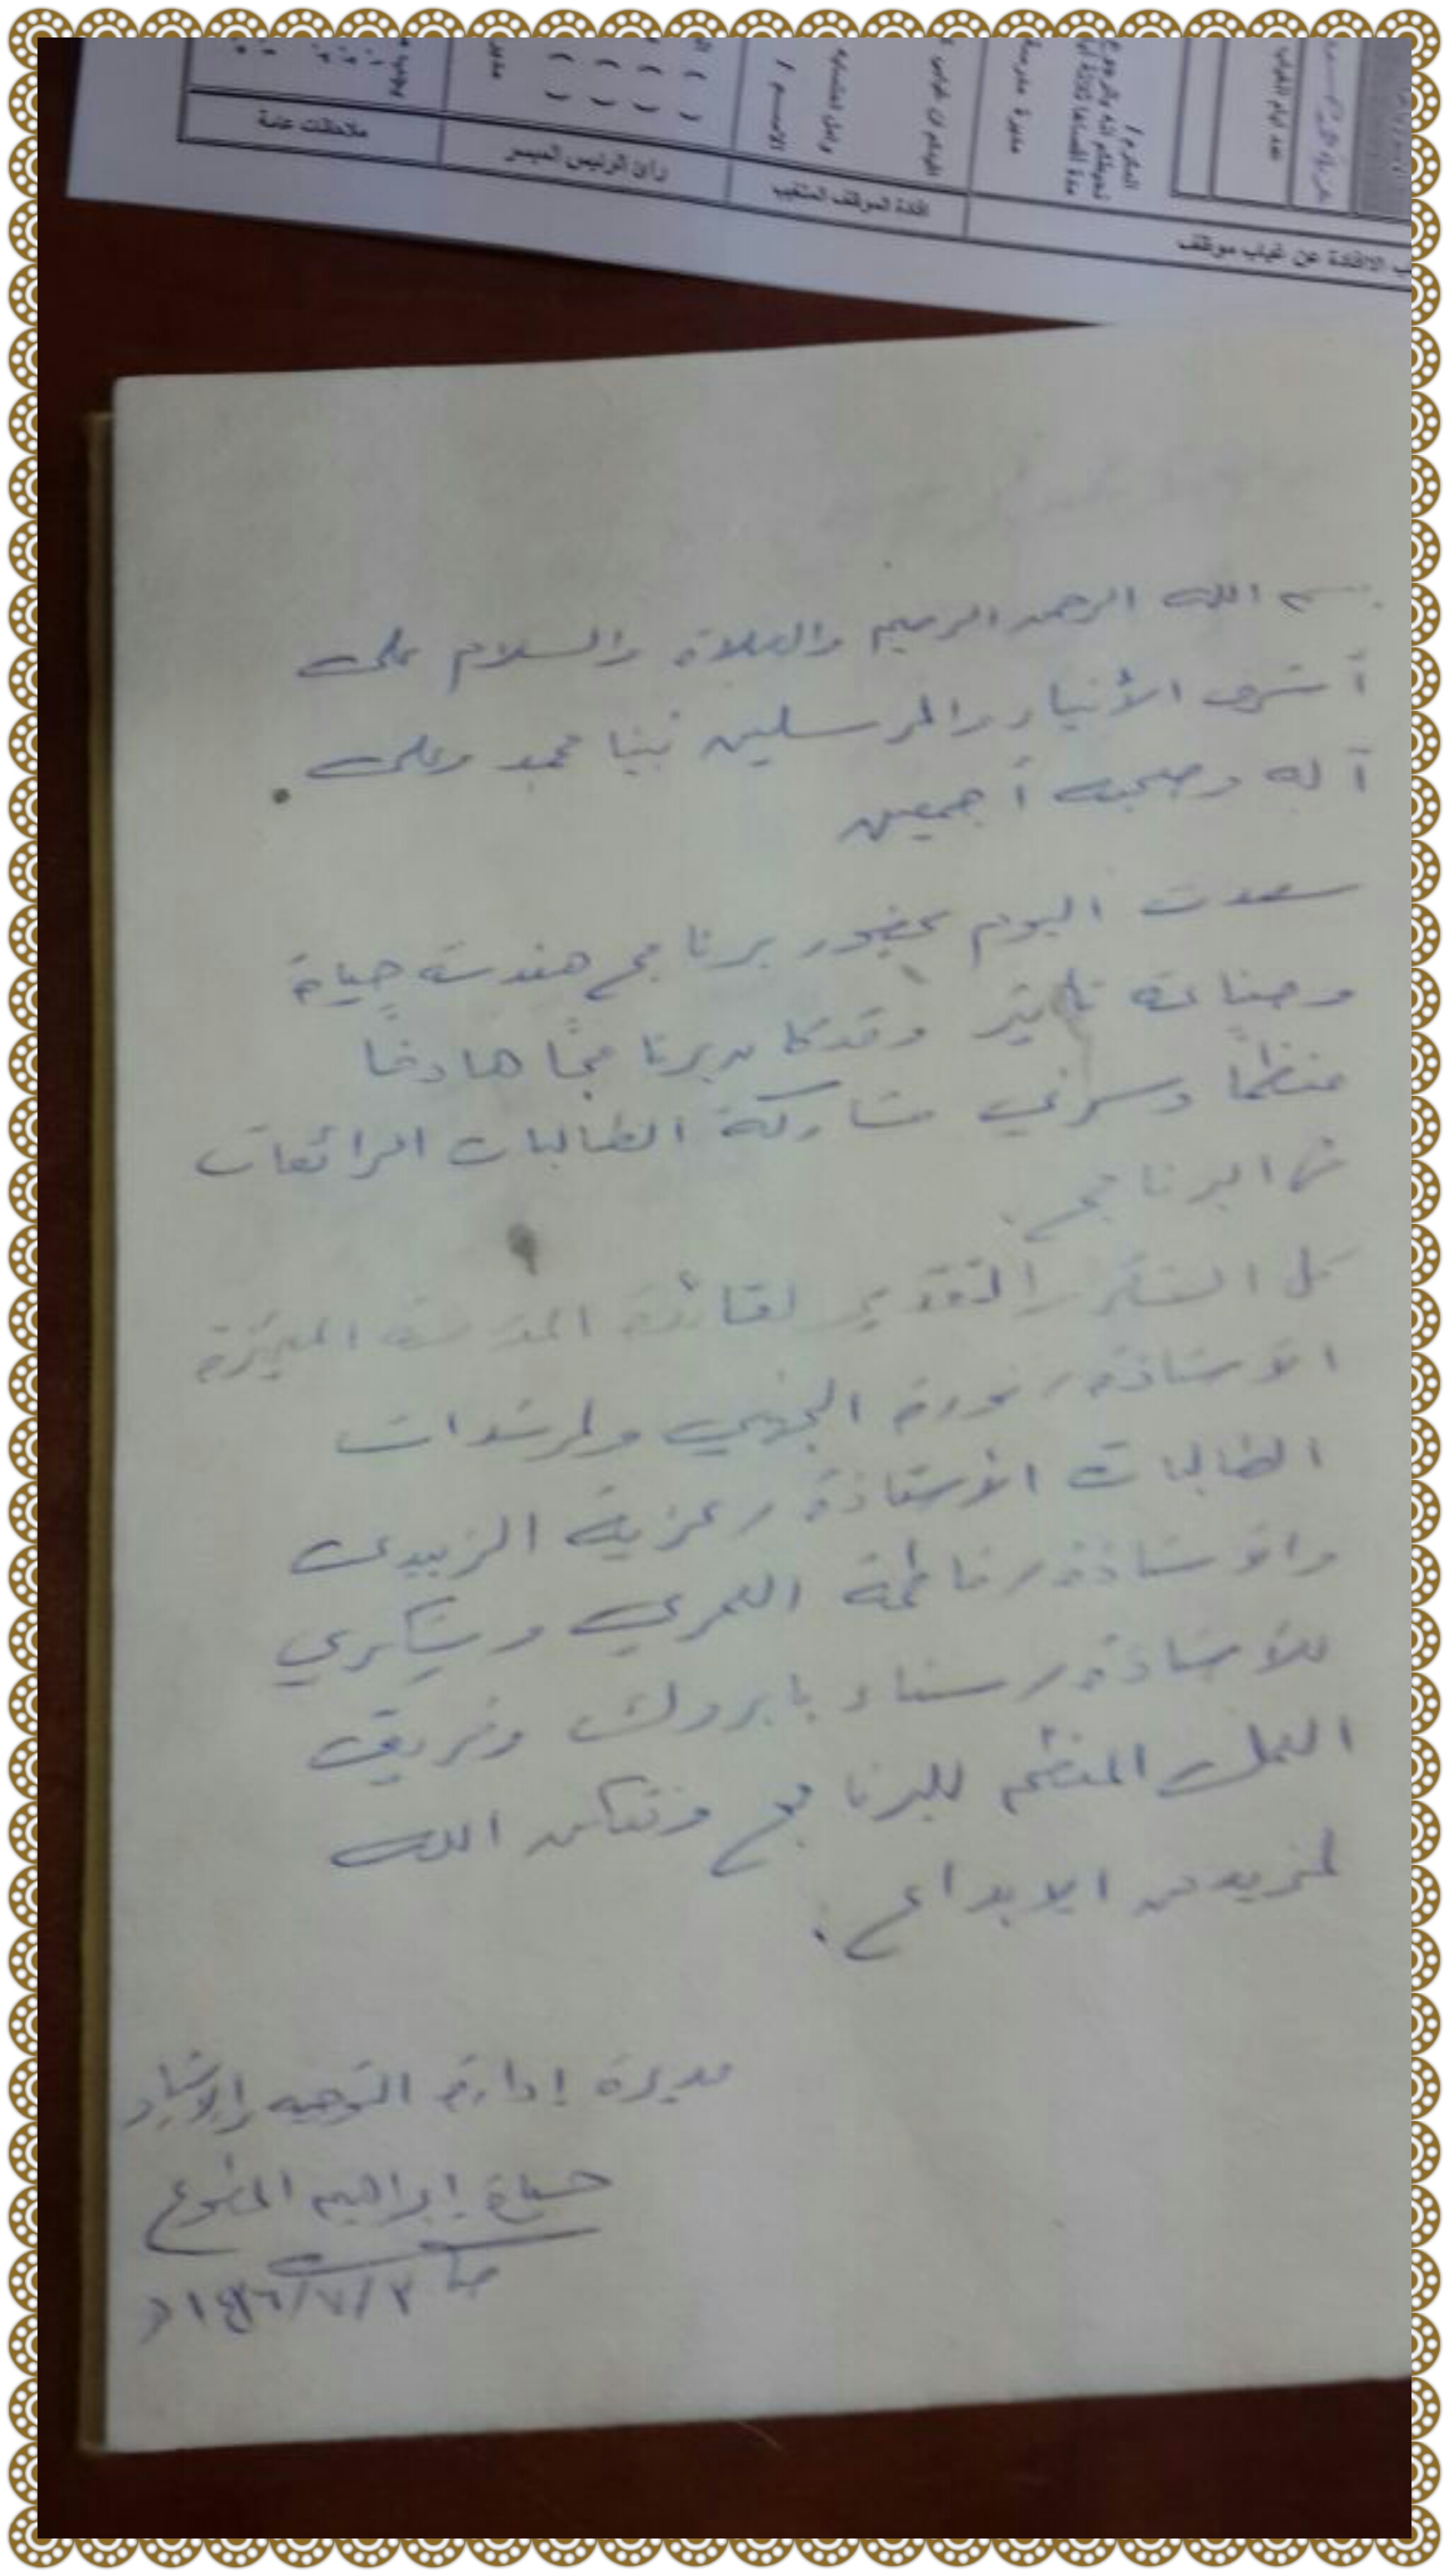 ب الافادة عن غياب موظف
افادة الموظف المتغيب
رأي الرئيس المباشر
ملاحظات عامة
عدد ايام الغياب
المكرم /
مديرة مدرسة
الاسم /
بسم الله الرحمن الرحيم والصلاة والسلام على
أشرف الأنبياء والمرسلين نبينا محمد وعلى
آله وصحبه أجمعين
سعدت اليوم بحضور برنامج هندسة حياة
وصناعة تأثير وقد كان برنامجًا هادفًا
منظمًا وسرني مشاركة الطالبات الرائعات
في البرنامج.
كل الشكر والتقدير لقائدة المدرسة المميزة
الاستاذة / نورة الجهني ولمرشدات
الطالبات الأستاذة / عزية الزبيدي
والاستاذة / فاطمة العمري وشكري
للأستاذة / سناء بابروك وفريق
العمل المنظم للبرنامج وفقكن الله
لمزيد من الابداع.
مديرة إدارة التوجيه والإرشاد
حياة إبراهيم